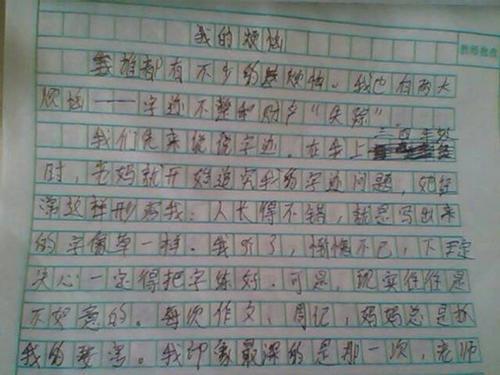 我的烦恼
谁都有不少的烦恼。我也有两大
烦恼——字迹不整和财产“失踪”
我们先来说说字迹。在我上三年级
时,老妈就开始追究我的字迹问题,她经
常这样形容我:人长得不错,就是写出来
的字像草一样。我听了,惭愧不已,下定
决心一定得把字练好。可是,现实往往是
不如意的。每次作文、周记,妈妈总是说
我的字。我印象最深的是那一次,老师